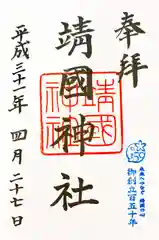 奉拝
靖國神社
靖國神社
平成三十一年 四月 二十七日
御創立百五十年